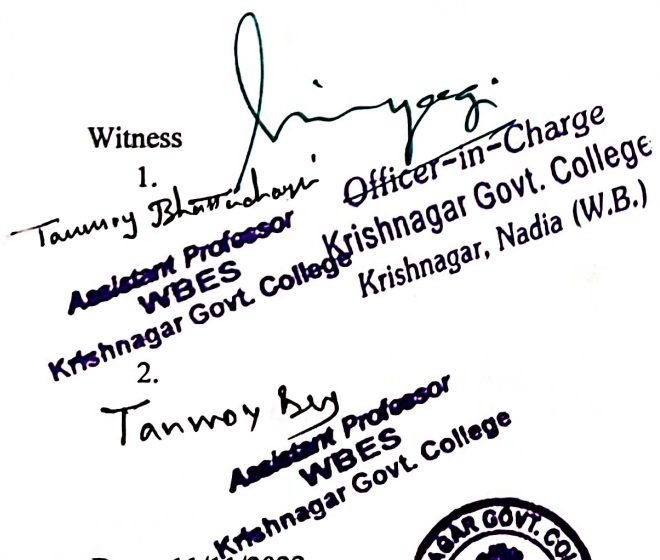 Witness
1.
Tanmoy Bhattacharyi
Assistant Professor
WBES
Krishnagar Govt. College
Officer-in-Charge
Krishnagar Govt. College
Krishnagar, Nadia (W.B.)
2.
Tanmoy
Assistant Professor
WBES
Krishnagar Govt. College
AGAR GOVT. COL